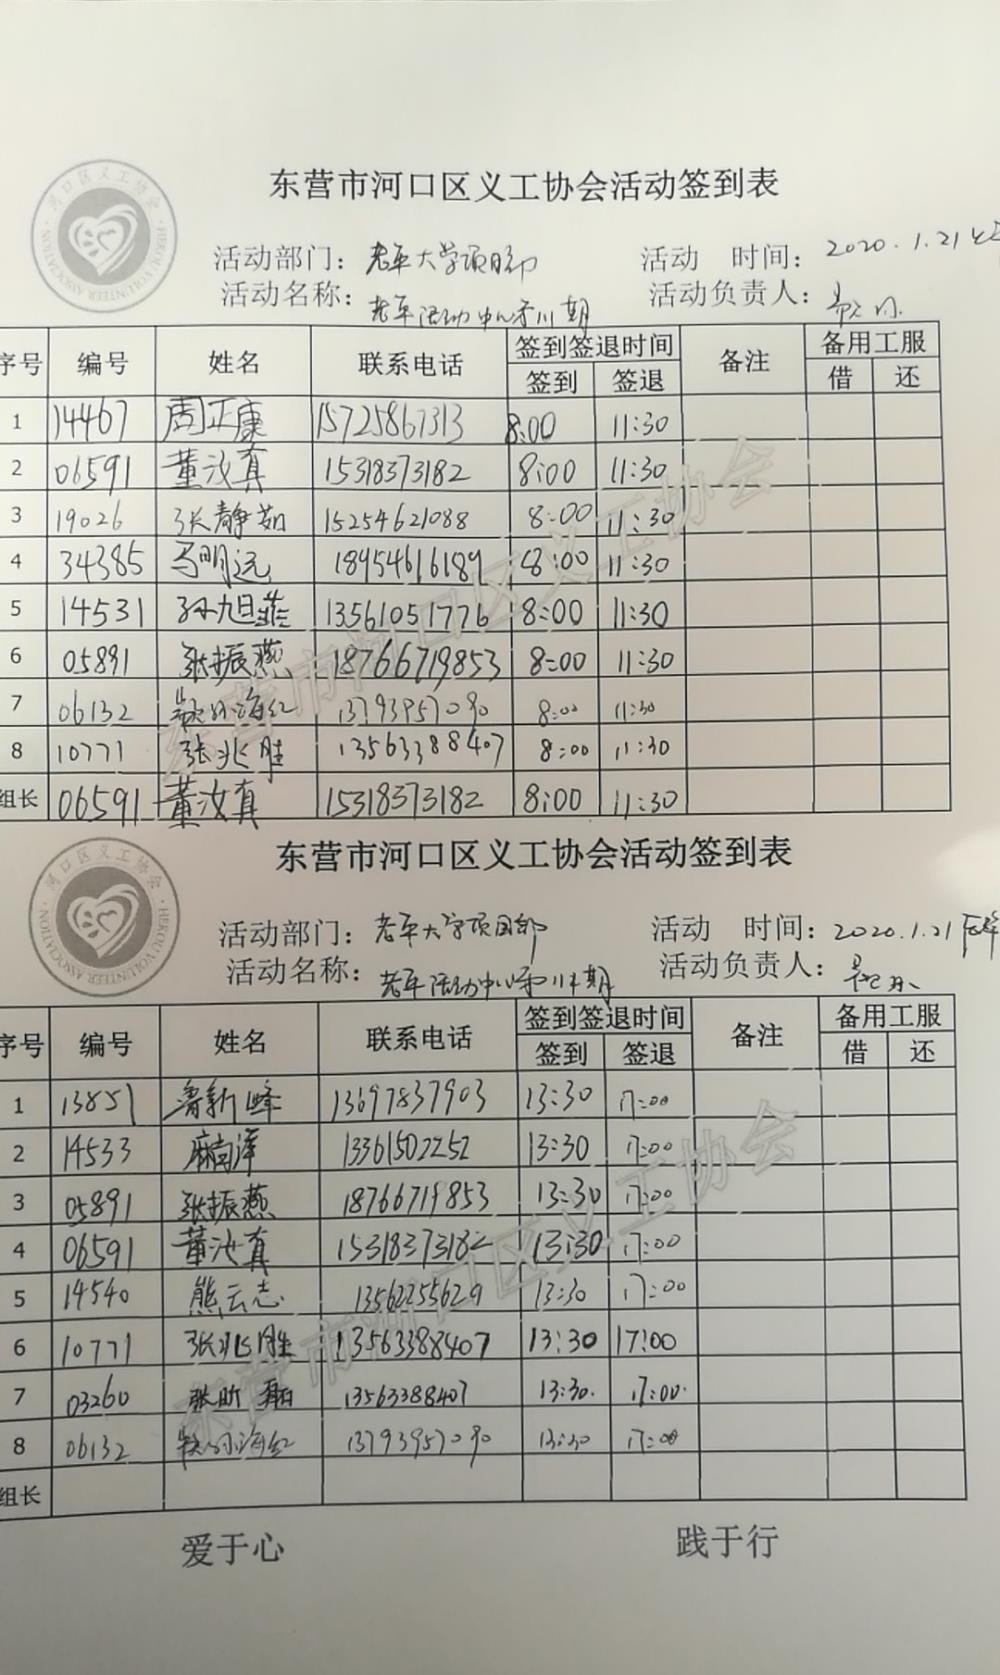 东营市河口区义工协会活动签到表
河口区义工协会
HEKOU VOLUNTEER ASSOCIATION
活动部门：老年大学项目部 活动 时间：2020.1.21上午
活动名称：老年活动中心第川期 活动负责人：
序号 编号 姓名 联系电话 签到签退时间 备注 备用工服
签到 签退 借 还
1 14467 周正康 15725867313 8:00 11:30
2 06591 董汝真 15318373182 8:00 11:30
3 19026 张静茹 15254621088 8:00 11:30
4 34385 马明远 18954616189 8:00 11:30
5 14531 孙旭菲 13561051776 8:00 11:30
6 05891 张振燕 18766719853 8:00 11:30
7 06132 海红 13793957090 8:00 11:30
8 10771 张兆胜 13563388407 8:00 11:30
组长 06591 董汝真 15318373182 8:00 11:30
东营市河口区义工协会
东营市河口区义工协会活动签到表
河口区义工协会
HEKOU VOLUNTEER ASSOCIATION
活动部门：老年大学项目部 活动 时间：2020.1.21下午
活动名称：老年活动中心第 期 活动负责人：
序号 编号 姓名 联系电话 签到签退时间 备注 备用工服
签到 签退 借 还
1 13851 鲁新峰 13697837903 13:30 17:00
2 14533 13361502252 13:30 17:00
3 05891 张振燕 18766719853 13:30 17:00
4 06591 董汝真 15318373182 13:30 17:00
5 14540 熊云志 13562255629 13:30 17:00
6 10771 张兆胜 13563388407 13:30 17:00
7 03260 张昕 13563388407 13:30 17:00
8 06132 海红 13793957090 13:30 17:00
组长
东营市河口区义工协会
爱于心 践于行